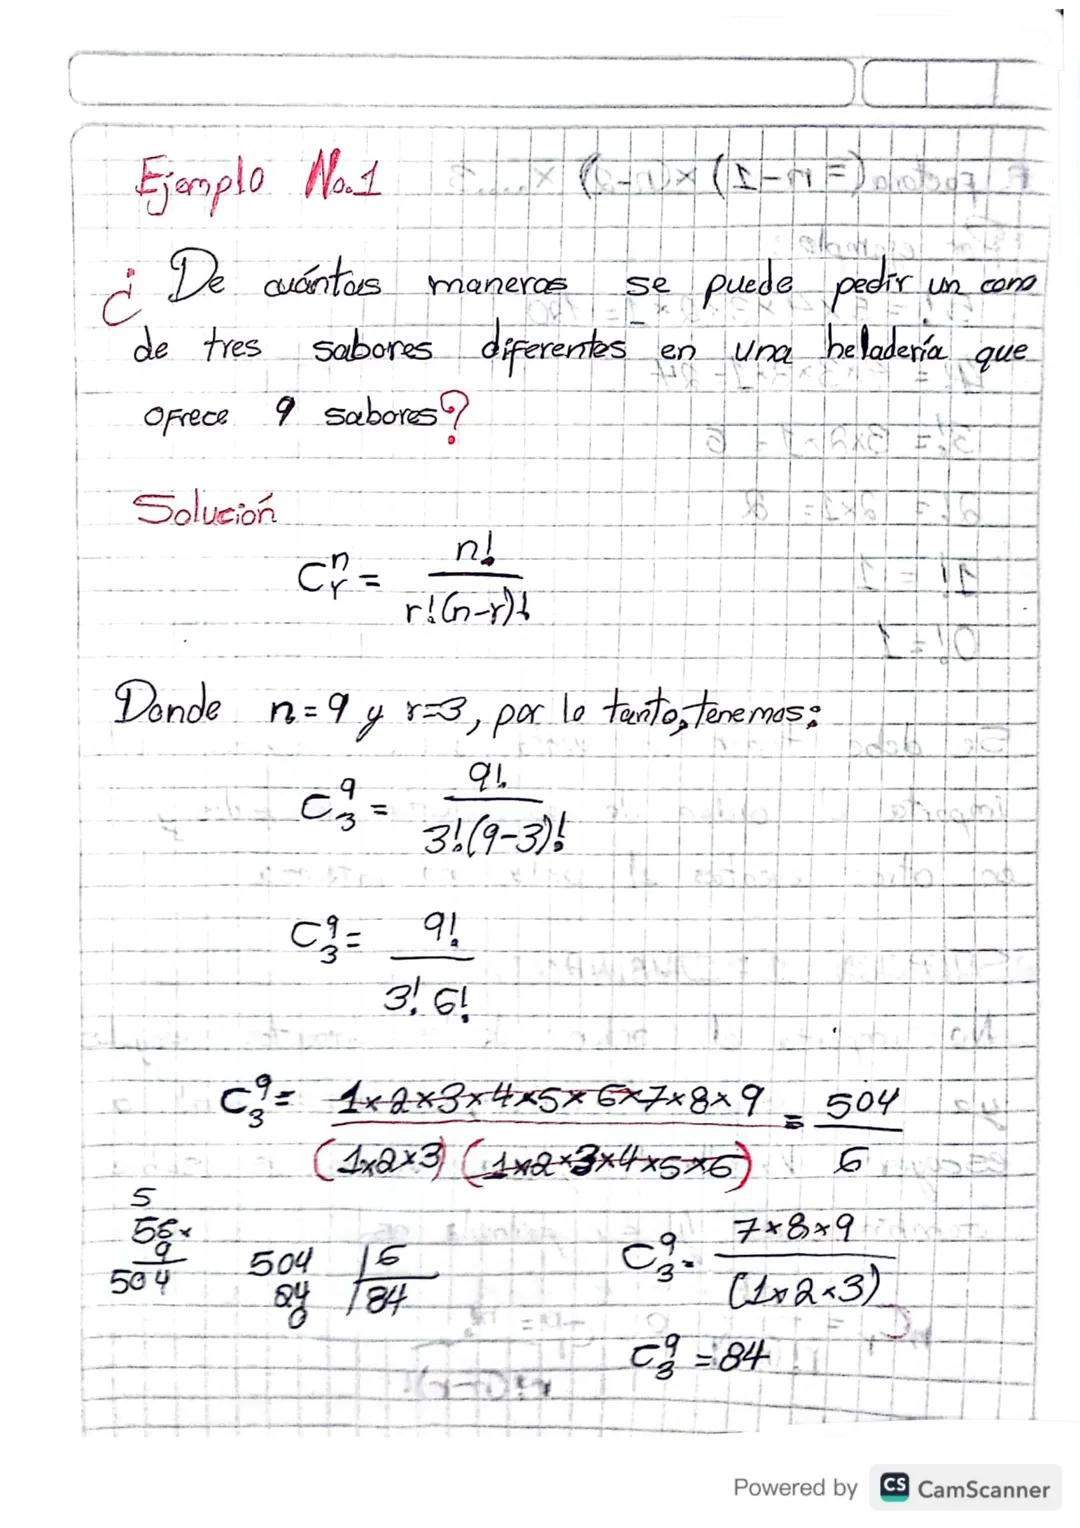 Ejemplo No.1
¿De cuántas maneras se puede pedir un cono
de tres sabores diferentes en una heladería que
ofrece 9 sabores?
Solución
C n r = n! / r!(n-r)!
Donde n=9 y r=3, por lo tanto, tenemos:
C 9 3 = 9! / 3!(9-3)!
C 9 3 = 9! / 3! 6!
C 9 3 = 1x2x3x4x5x6x7x8x9 / (1x2x3) (1x2x3x4x5x6) = 504 / 6
5
56x
9
504
504 | 6
24 84
0
C 9 3 = 7x8x9 / (1x2x3)
C 9 3 = 84
Powered by CS CamScanner